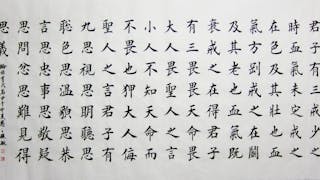 君子有三戒少之
時血氣未定戒之
在色及其壯也血
氣方剛戒之在鬥
及其老也血氣既
衰戒之在得君子
有三畏畏天命畏
大人畏聖人之言
小人不知天命而
不畏也狎大人侮
聖人之言君子有
九思視思明聽思
聰色思溫貌思恭
言思忠事思敬疑
思問忿思難見得
思義